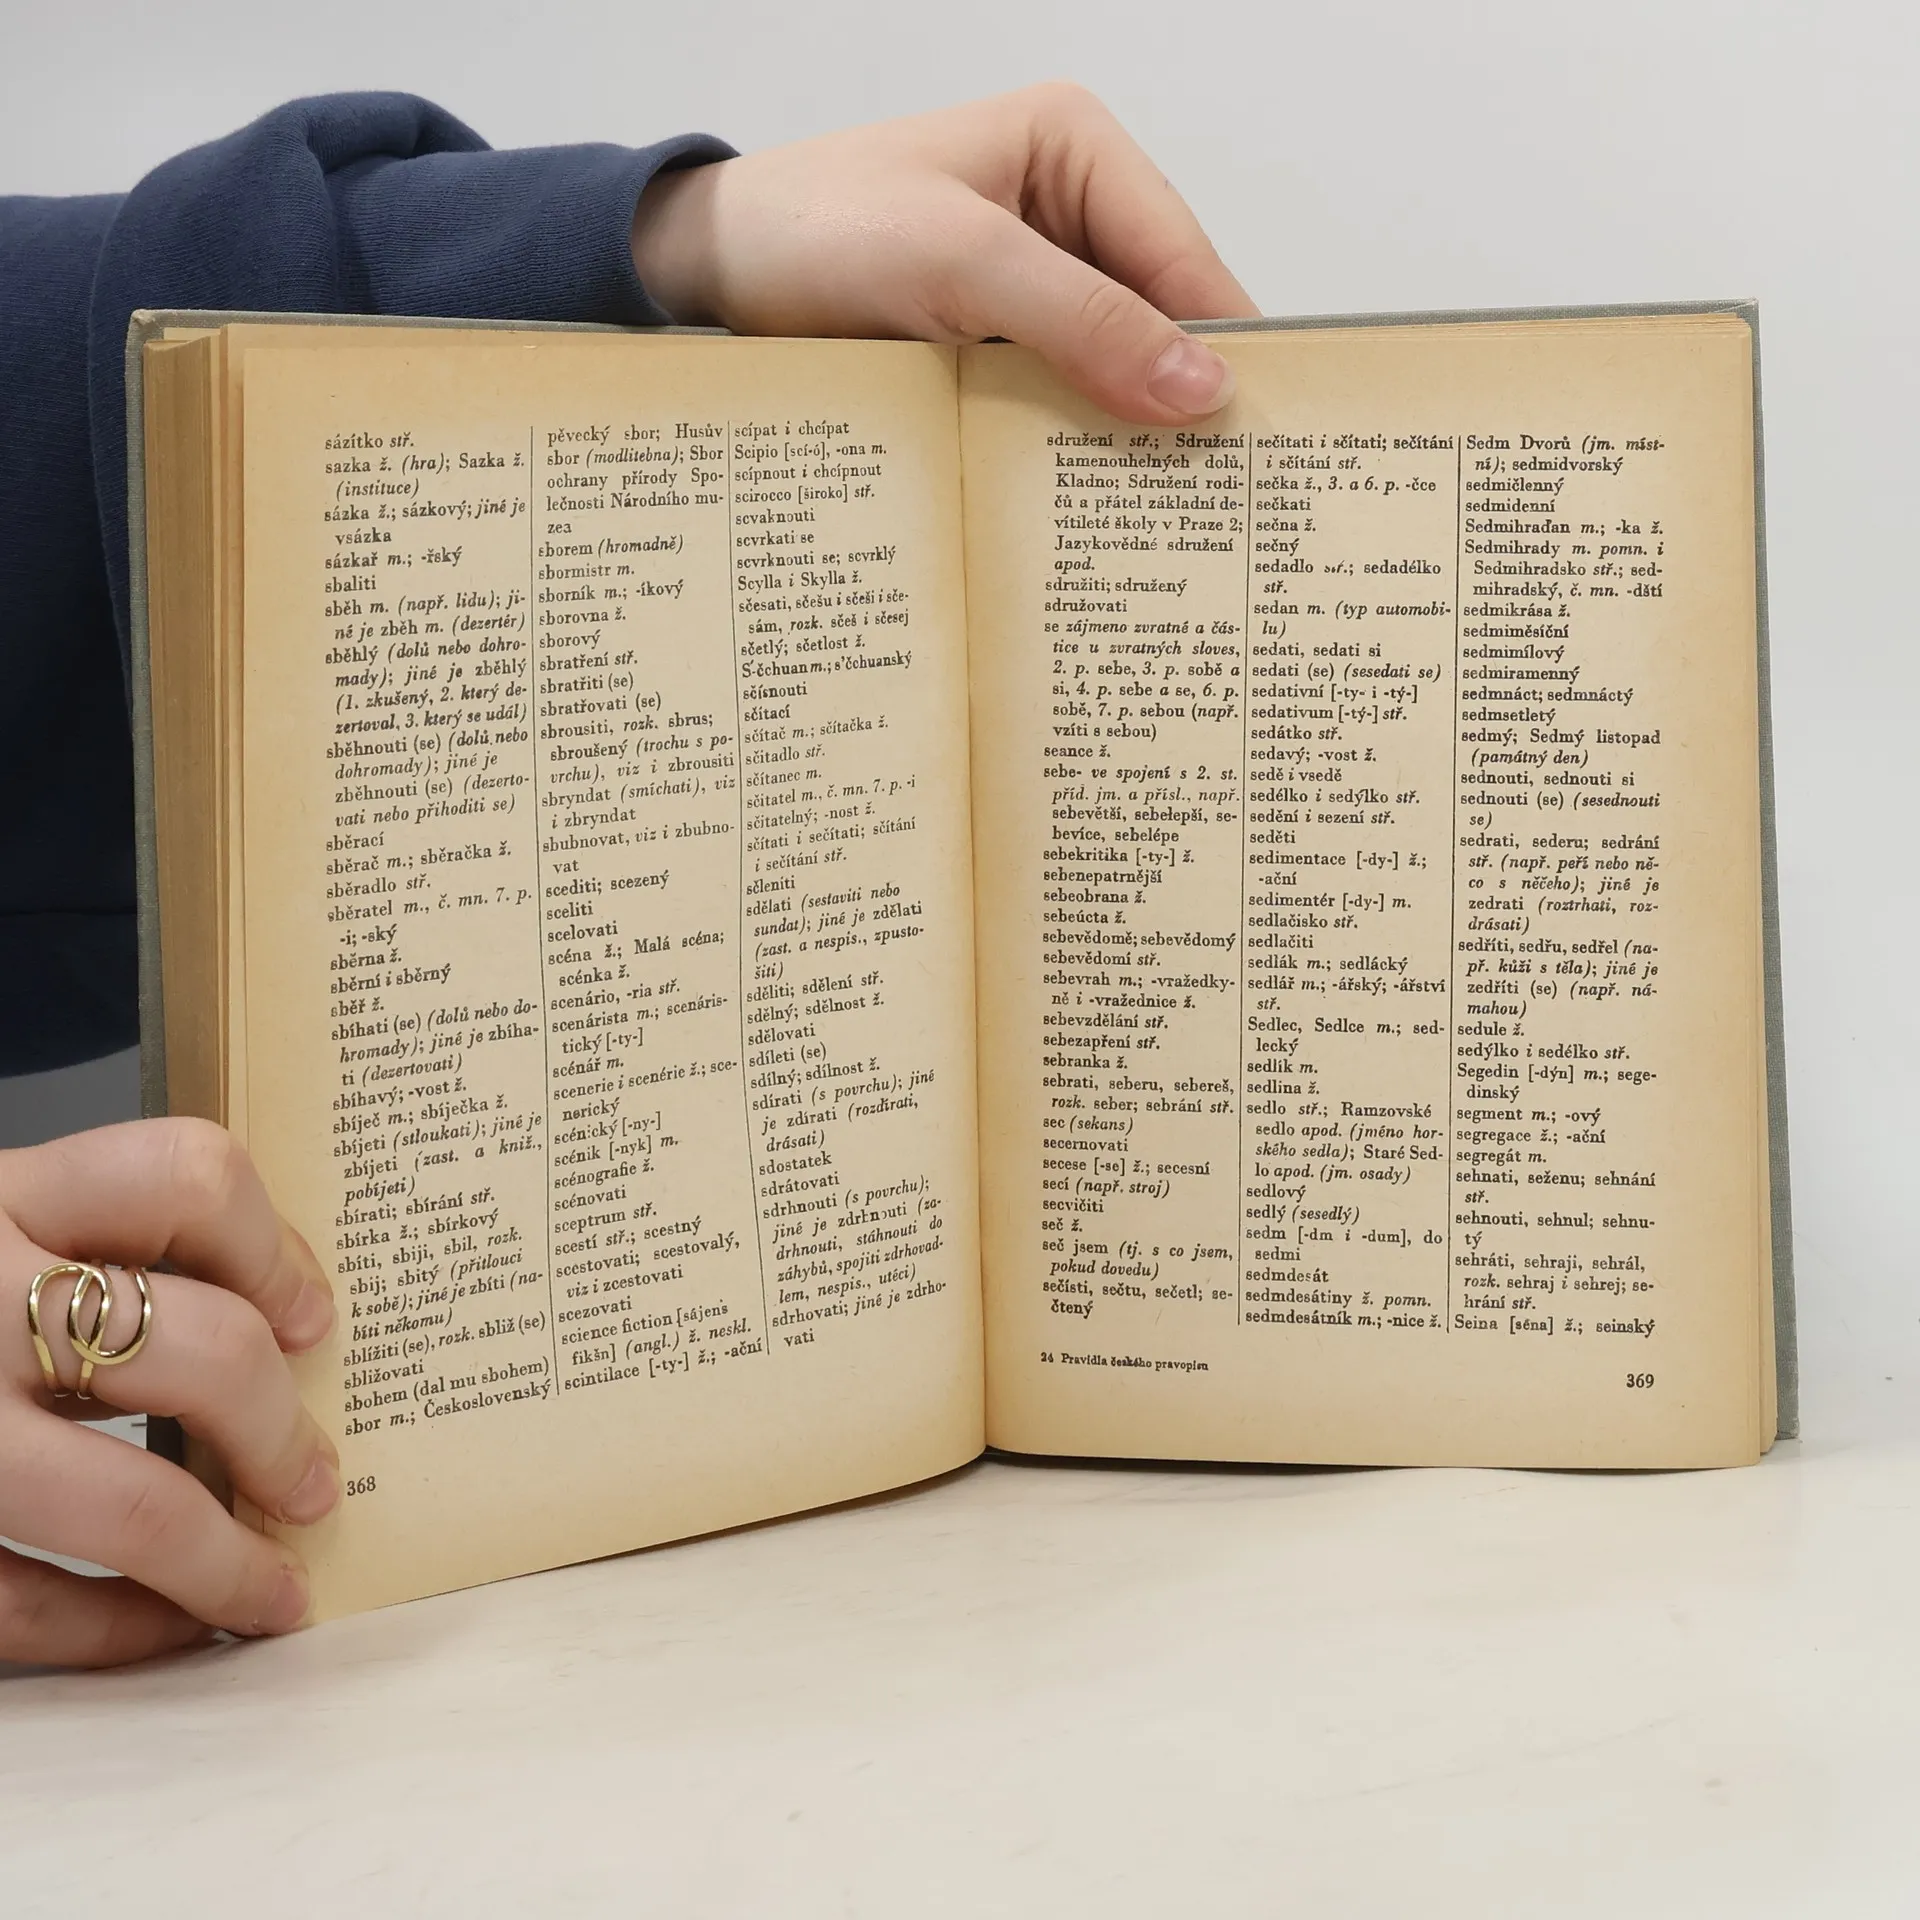 sázítko stř.
sazka ž. (hra); Sazka ž.
(instituce)
sázka ž.; sázkový; jiné je
vsázka
sázkař m.; -řský
sbaliti
sběh m. (např. lidu); ji-
né je zběh m. (dezertér)
sběhlý (dolů nebo dohro-
mady); jiné je zběhlý
(1. zkušený, 2. který de-
zertoval, 3. který se udál)
sběhnouti (se) (dolů nebo
dohromady); jiné je
zběhnouti (se) (dezerto-
vati nebo přihoditi se)
sběrací
sběrač m.; sběračka ž.
sběradlo stř.
sběratel m., č. mn. 7. p.
-i; -ský
sběrna ž.
sběrní i sběrný
sběř ž.
sbíhati (se) (dolů nebo do-
hromady); jiné je zbíha-
ti (dezertovati)
sbíhavý; -vost ž.
sbíječ m.; sbíječka ž.
sbíjeti (stloukati); jiné je
zbíjeti (zast. a kniž.,
pobíjeti)
sbírati; sbírání stř.
sbírka ž.; sbírkový
sbíti, sbiji, sbil, rozk.
sbij; sbitý (přitlouci
k sobě); jiné je zbíti (na-
bíti někomu)
sblížiti (se), rozk. sbliž (se)
sbližovati
sbohem (dal mu sbohem)
sbor m.; Československý
pěvecký sbor; Husův
sbor (modlitebna); Sbor
ochrany přírody Spo-
lečnosti Národního mu-
zea
sborem (hromadně)
sbormistr m.
sborník m.; -íkový
sborovna ž.
sborový
sbratření stř.
sbratřiti (se)
sbratřovati (se)
sbrousiti, rozk. sbrus;
sbroušený (trochu s po-
vrchu), viz i zbrousiti
sbryndat (smíchati), viz
i zbryndat
sbubnovat, viz i zbubno-
vat
scediti; scezený
sceliti
scelovati
scéna ž.; Malá scéna;
scénka ž.
scenário, -ria stř.
scenárista m.; scenáris-
tický [-ty-]
scénář m.
scenerie i scenérie ž.; sce-
nerický
scénický [-ny-]
scénik [-nyk] m.
scénografie ž.
scénovati
sceptrum stř.
scestí stř.; scestný
scestovati; scestovalý,
viz i zcestovati
scezovati
science fiction [sájens
fikšn] (angl.) ž. neskl.
scintilace [-ty-] ž.; -ační
scípat i chcípat
Scipio [scí-ó], -ona m.
scípnout i chcípnout
scirocco [široko] stř.
scvaknouti
scvrkati se
scvrknouti se; scvrklý
Scylla i Skylla ž.
sčesati, sčešu i sčeši i sče-
sám, rozk. sčeš i sčesej
sčetlý; sčetlost ž.
S'-čchuan m.; s'čchuanský
sčísnouti
sčítací
sčítač m.; sčítačka ž.
sčitadlo stř.
sčítanec m.
sčitatel m., č. mn. 7. p. -i
sčitatelný; -nost ž.
sčítati i sečítati; sčítání
i sečítání stř.
sčleniti
sdělati (sestaviti nebo
sundat); jiné je zdělati
(zast. a nespis., zpusto-
šiti)
sděliti; sdělení stř.
sdělný; sdělnost ž.
sdělovati
sdíleti (se)
sdílný; sdílnost ž.
sdírati (s povrchu); jiné
je zdírati (rozdírati,
drásati)
sdostatek
sdrátovati
sdrhnouti (s povrchu);
jiné je zdrhnouti (za-
drhnouti, stáhnouti do
záhybů, spojiti zdrhovad-
lem, nespis., utéci)
sdrhovati; jiné je zdrho-
vati
368
sdružení stř.; Sdružení
kamenouhelných dolů,
Kladno; Sdružení rodi-
čů a přátel základní de-
vítileté školy v Praze 2;
Jazykovědné sdružení
apod.
sdružiti; sdružený
sdružovati
se zájmeno zvratné a čás-
tice u zvratných sloves,
2. p. sebe, 3. p. sobě a
si, 4. p. sebe a se, 6. p.
sobě, 7. p. sebou (např.
vzíti s sebou)
seance ž.
sebe- ve spojení s 2. st.
příd. jm. a přísl., např.
sebevětší, sebelepší, se-
bevíce, sebelépe
sebekritika [-ty-] ž.
sebenepatrnější
sebeobrana ž.
sebeúcta ž.
sebevědomě; sebevědomý
sebevědomí stř.
sebevrah m.; -vražedky-
ně i -vražednice ž.
sebevzdělání stř.
sebezapření stř.
sebranka ž.
sebrati, seberu, sebereš,
rozk. seber; sebrání stř.
sec (sekans)
secernovati
secese [-se] ž.; secesní
secí (např. stroj)
secvičiti
seč ž.
seč jsem (tj. s co jsem,
pokud dovedu)
sečísti, sečtu, sečetl; se-
čtený
sečítati i sčítati; sečítání
i sčítání stř.
sečka ž., 3. a 6. p. -čce
sečkati
sečna ž.
sečný
sedadlo stř.; sedadélko
stř.
sedan m. (typ automobi-
lu)
sedati, sedati si
sedati (se) (sesedati se)
sedativní [-ty- i -tý-]
sedativum [-tý-] stř.
sedátko stř.
sedavý; -vost ž.
sedě i vsedě
sedélko i sedýlko stř.
sedění i sezení stř.
seděti
sedimentace [-dy-] ž.;
-ační
sedimentér [-dy-] m.
sedlačisko stř.
sedlačiti
sedlák m.; sedlácký
sedlář m.; -ářský; -ářství
stř.
Sedlec, Sedlce m.; sed-
lecký
sedlík m.
sedlina ž.
sedlo stř.; Ramzovské
sedlo apod. (jméno hor-
ského sedla); Staré Sed-
lo apod. (jm. osady)
sedlový
sedlý (sesedlý)
sedm [-dm i -dum], do
sedmi
sedmdesát
sedmdesátiny ž. pomn.
sedmdesátník m.; -nice ž.
Sedm Dvorů (jm. míst-
ní); sedmidvorský
sedmičlenný
sedmidenní
Sedmihraďan m.; -ka ž.
Sedmihrady m. pomn. i
Sedmihradsko stř.; sed-
mihradský, č. mn. -dští
sedmikrása ž.
sedmiměsíční
sedmimílový
sedmiramenný
sedmnáct; sedmnáctý
sedmsetletý
sedmý; Sedmý listopad
(památný den)
sednouti, sednouti si
sednouti (se) (sesednouti
se)
sedrati, sederu; sedrání
stř. (např. peří nebo ně-
co s něčeho); jiné je
zedrati (roztrhati, roz-
drásati)
sedříti, sedřu, sedřel (na-
př. kůži s těla); jiné je
zedříti (se) (např. ná-
mahou)
sedule ž.
sedýlko i sedélko stř.
Segedin [-dýn] m.; sege-
dinský
segment m.; -ový
segregace ž.; -ační
segregát m.
sehnati, seženu; sehnání
stř.
sehnouti, sehnul; sehnu-
tý
sehráti, sehraji, sehrál,
rozk. sehraj i sehrej; se-
hrání stř.
Seina [séna] ž.; seinský
24 Pravidla českého pravopisu
369